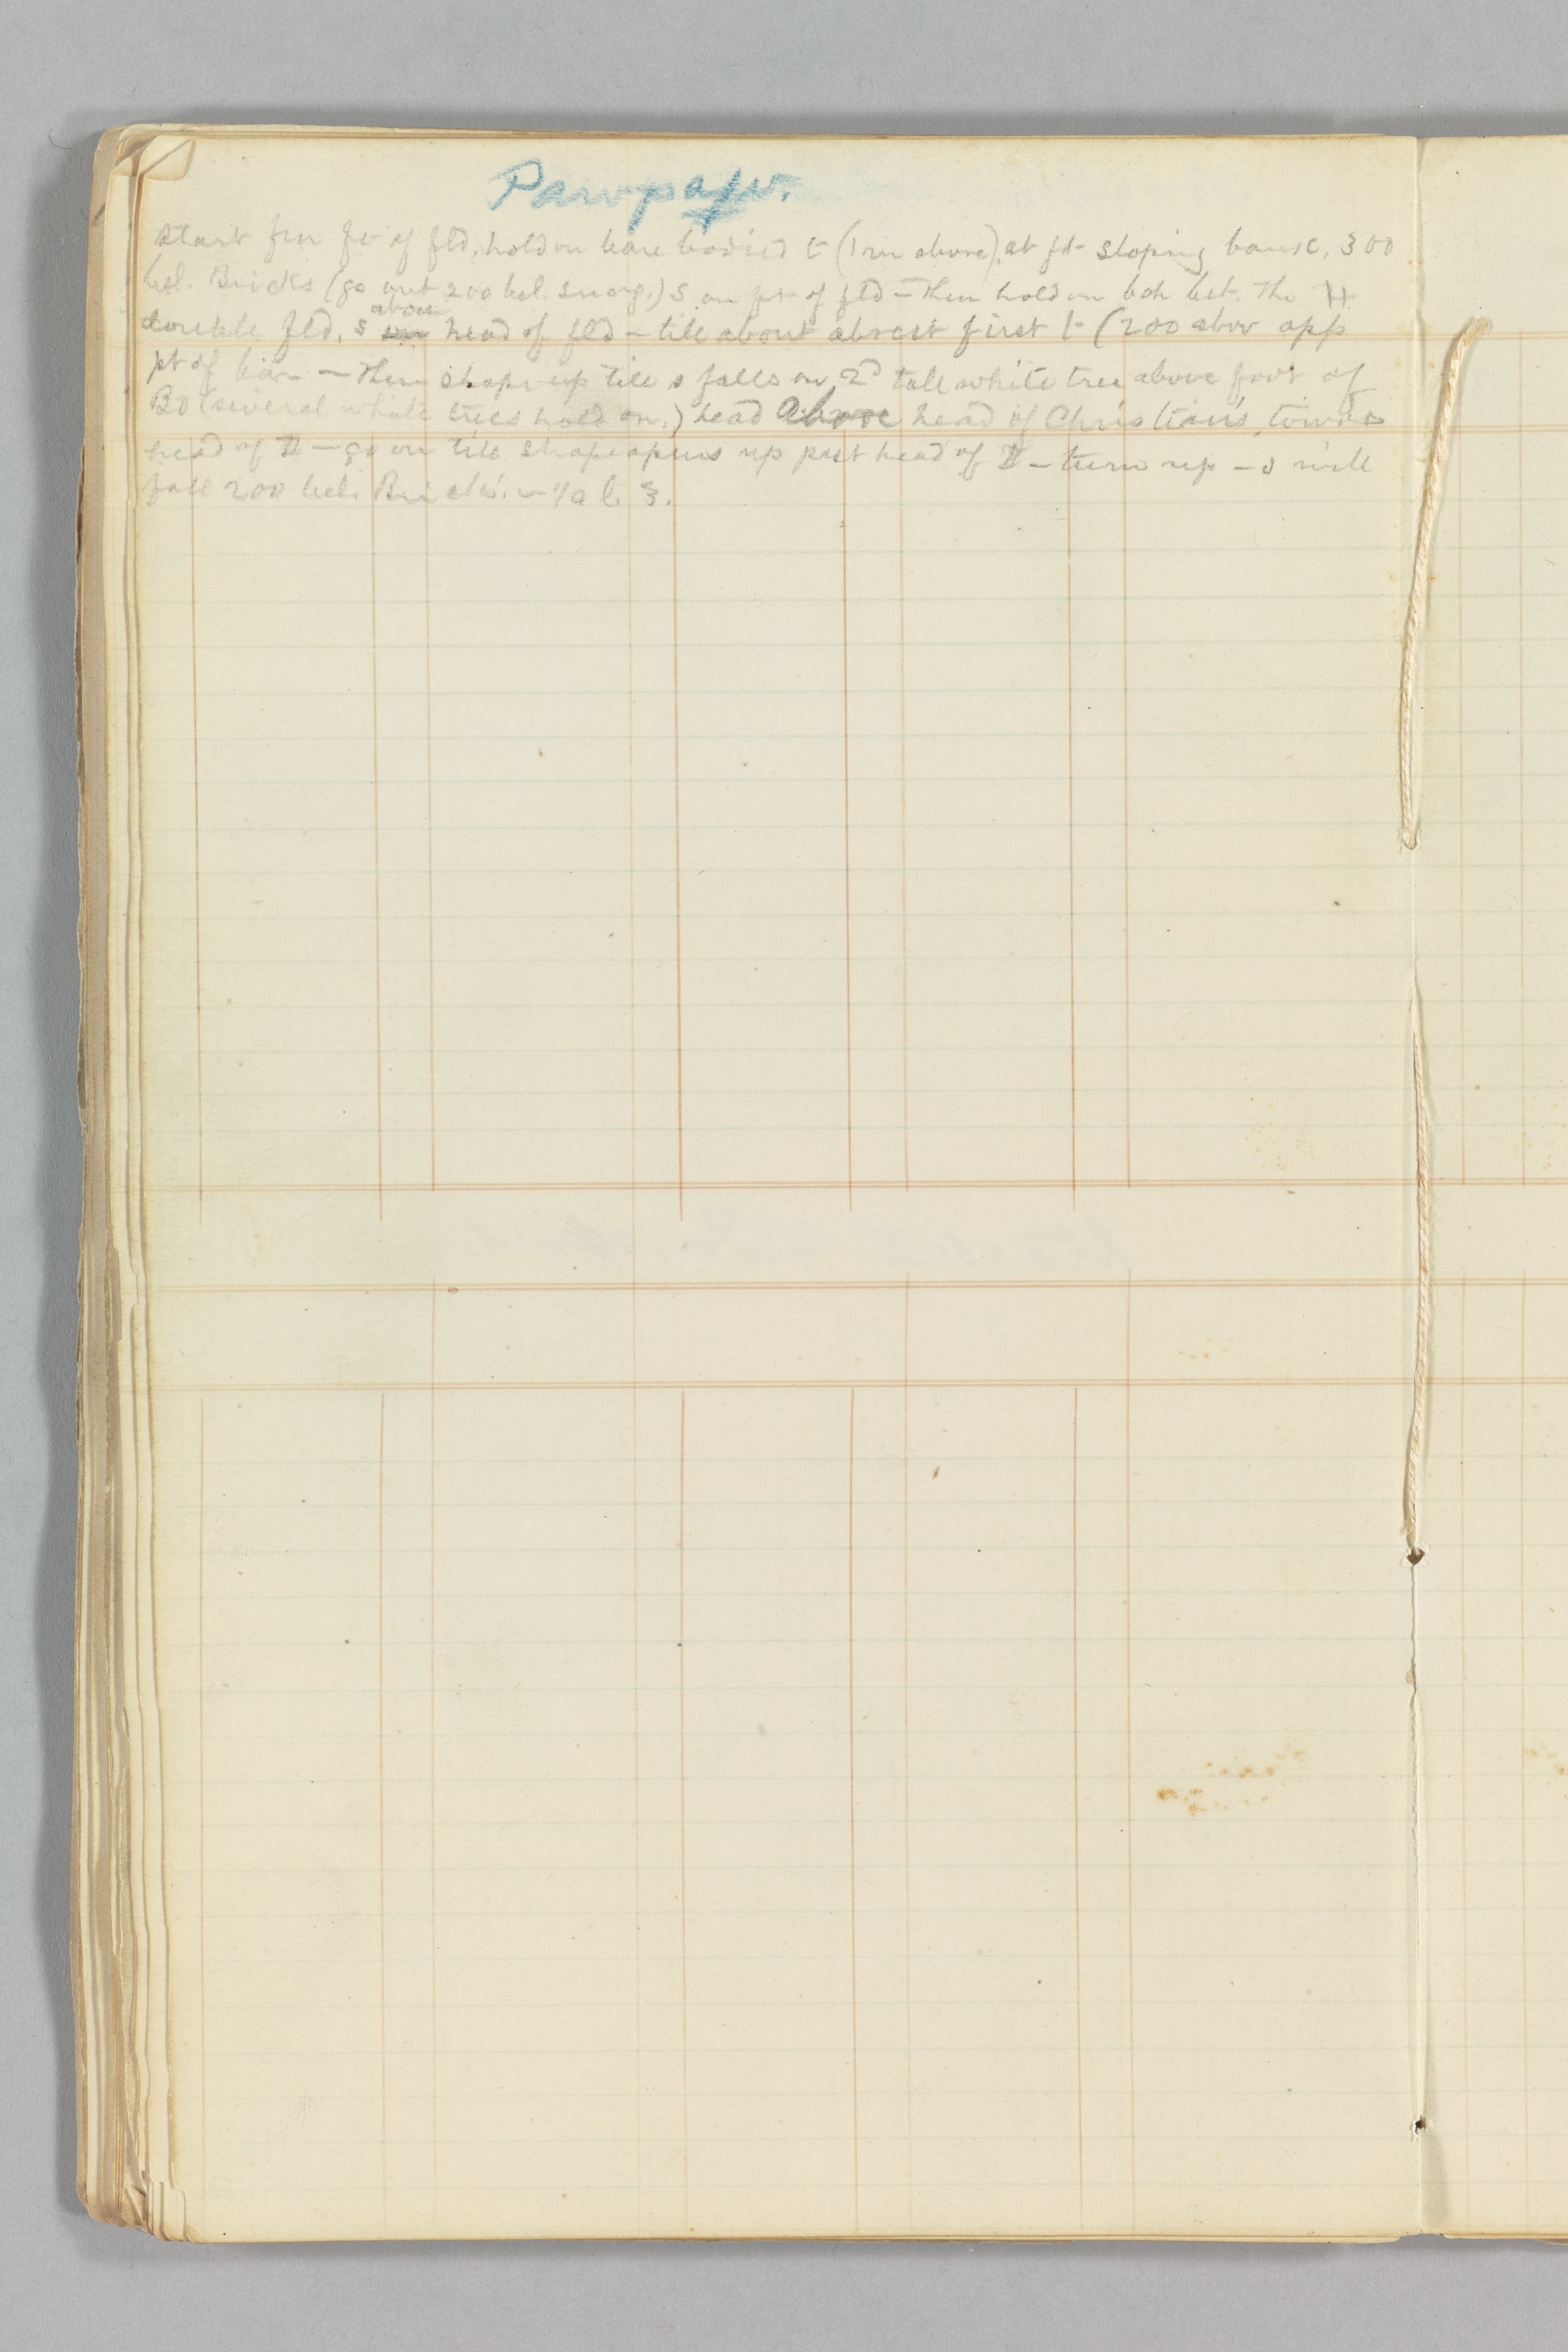 Pawpaw.
Start frm ft of fld, hold on bare bodied t (1 run above), at ft sloping bank, 300
bel. Bricks (go out 200 bel. snag.) S on pt of fld — Then hold on bet. The H
double fld, s above head of fld — till about abrest first t (200 abov opp
pt of bar — Then shape up till s falls on 2d tall white tree above foot of
BO (several white trees hold on.) head above head of Christian's, towards
head of — go on till shape opens up past head of — turn up — s will
fall 200 bel. Bricks. — 1/4 l. 3.